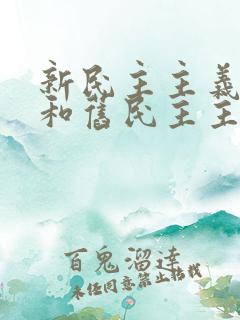 新民主主義
和舊民主主
百鬼溜達
未经同意禁止转载